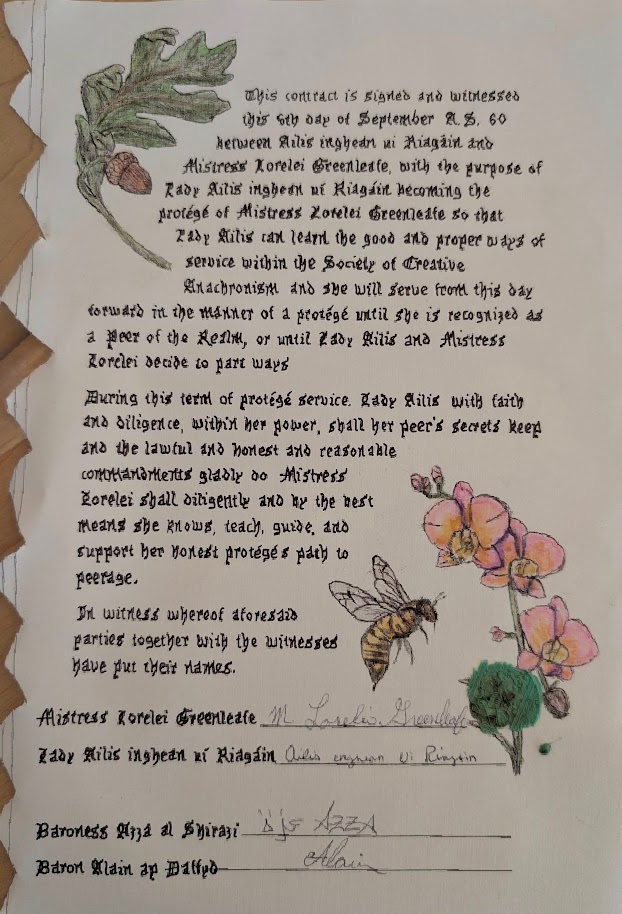 This contract is signed and witnessed
this 6th day of September A.S. 60
between Ailis inghean uí Riagáin and
Mistress Lorelei Greenleafe, with the purpose of
Lady Ailis inghean uí Riagáin becoming the
protégé of Mistress Lorelei Greenleafe so that
Lady Ailis can learn the good and proper ways of
service within the Society of Creative
Anachronism and she will serve from this day
forward in the manner of a protégé until she is recognized as
a Peer of the Realm, or until Lady Ailis and Mistress
Lorelei decide to part ways
During this term of protégé service. Lady Ailis with faith
and diligence, within her power, shall her peer's secrets keep
and the lawful and honest and reasonable
commandments gladly do Mistress
Lorelei shall diligently and by the best
means she knows, teach, guide, and
support her honest protégés path to
peerage.
In witness whereof aforesaid
parties together with the witnesses
have put their names.
Mistress Lorelei Greenleafe M Lorelei Greenleafe
Lady Ailis inghean uí Riagáin Ailis inghean Ui Riagain
Baroness Azza al Shirazi AZZA
Baron Alain ap Daffyd Alain